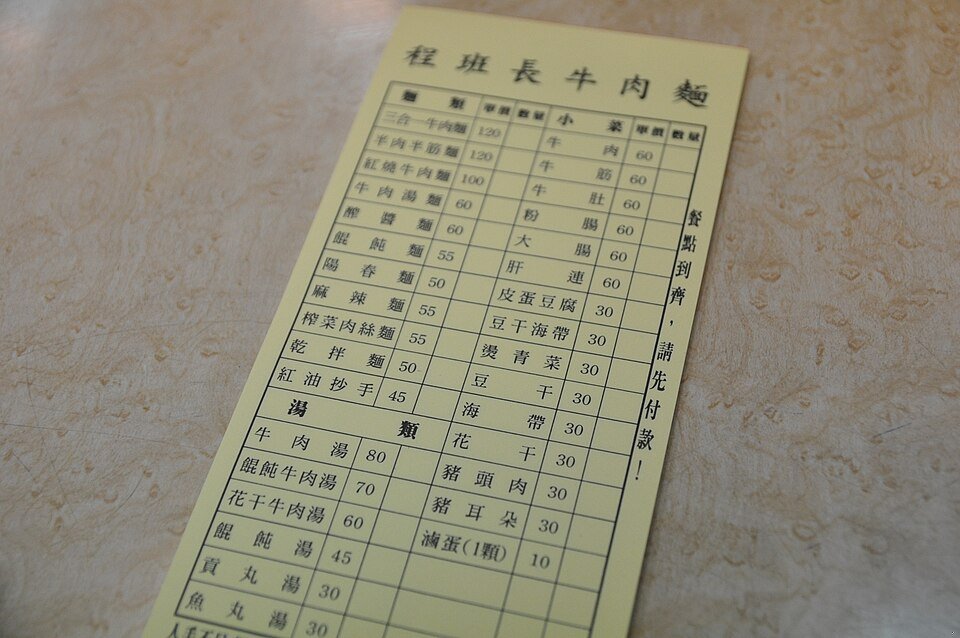 程班長牛肉麵
麵類 單價 數量 小菜 單價 數量
三合一牛肉麵 120 牛肉 60
半肉半筋麵 120 牛筋 60
紅燒牛肉麵 100 牛肚 60
牛肉湯麵 60 粉腸 60
酢醬麵 60 大腸 60
餛飩麵 55 肝連 60
陽春麵 50 皮蛋豆腐 30
麻辣麵 55 豆干海帶 30
榨菜肉絲麵 55 燙青菜 30
乾拌麵 50 豆干 30
紅油抄手 45 海帶 30
湯類 花干 30
牛肉湯 80 豬頭肉 30
餛飩牛肉湯 70 豬耳朵 30
花干牛肉湯 60 滷蛋(1顆) 10
餛飩湯 45
貢丸湯 30
魚丸湯 30
餐點到齊，請先付款！